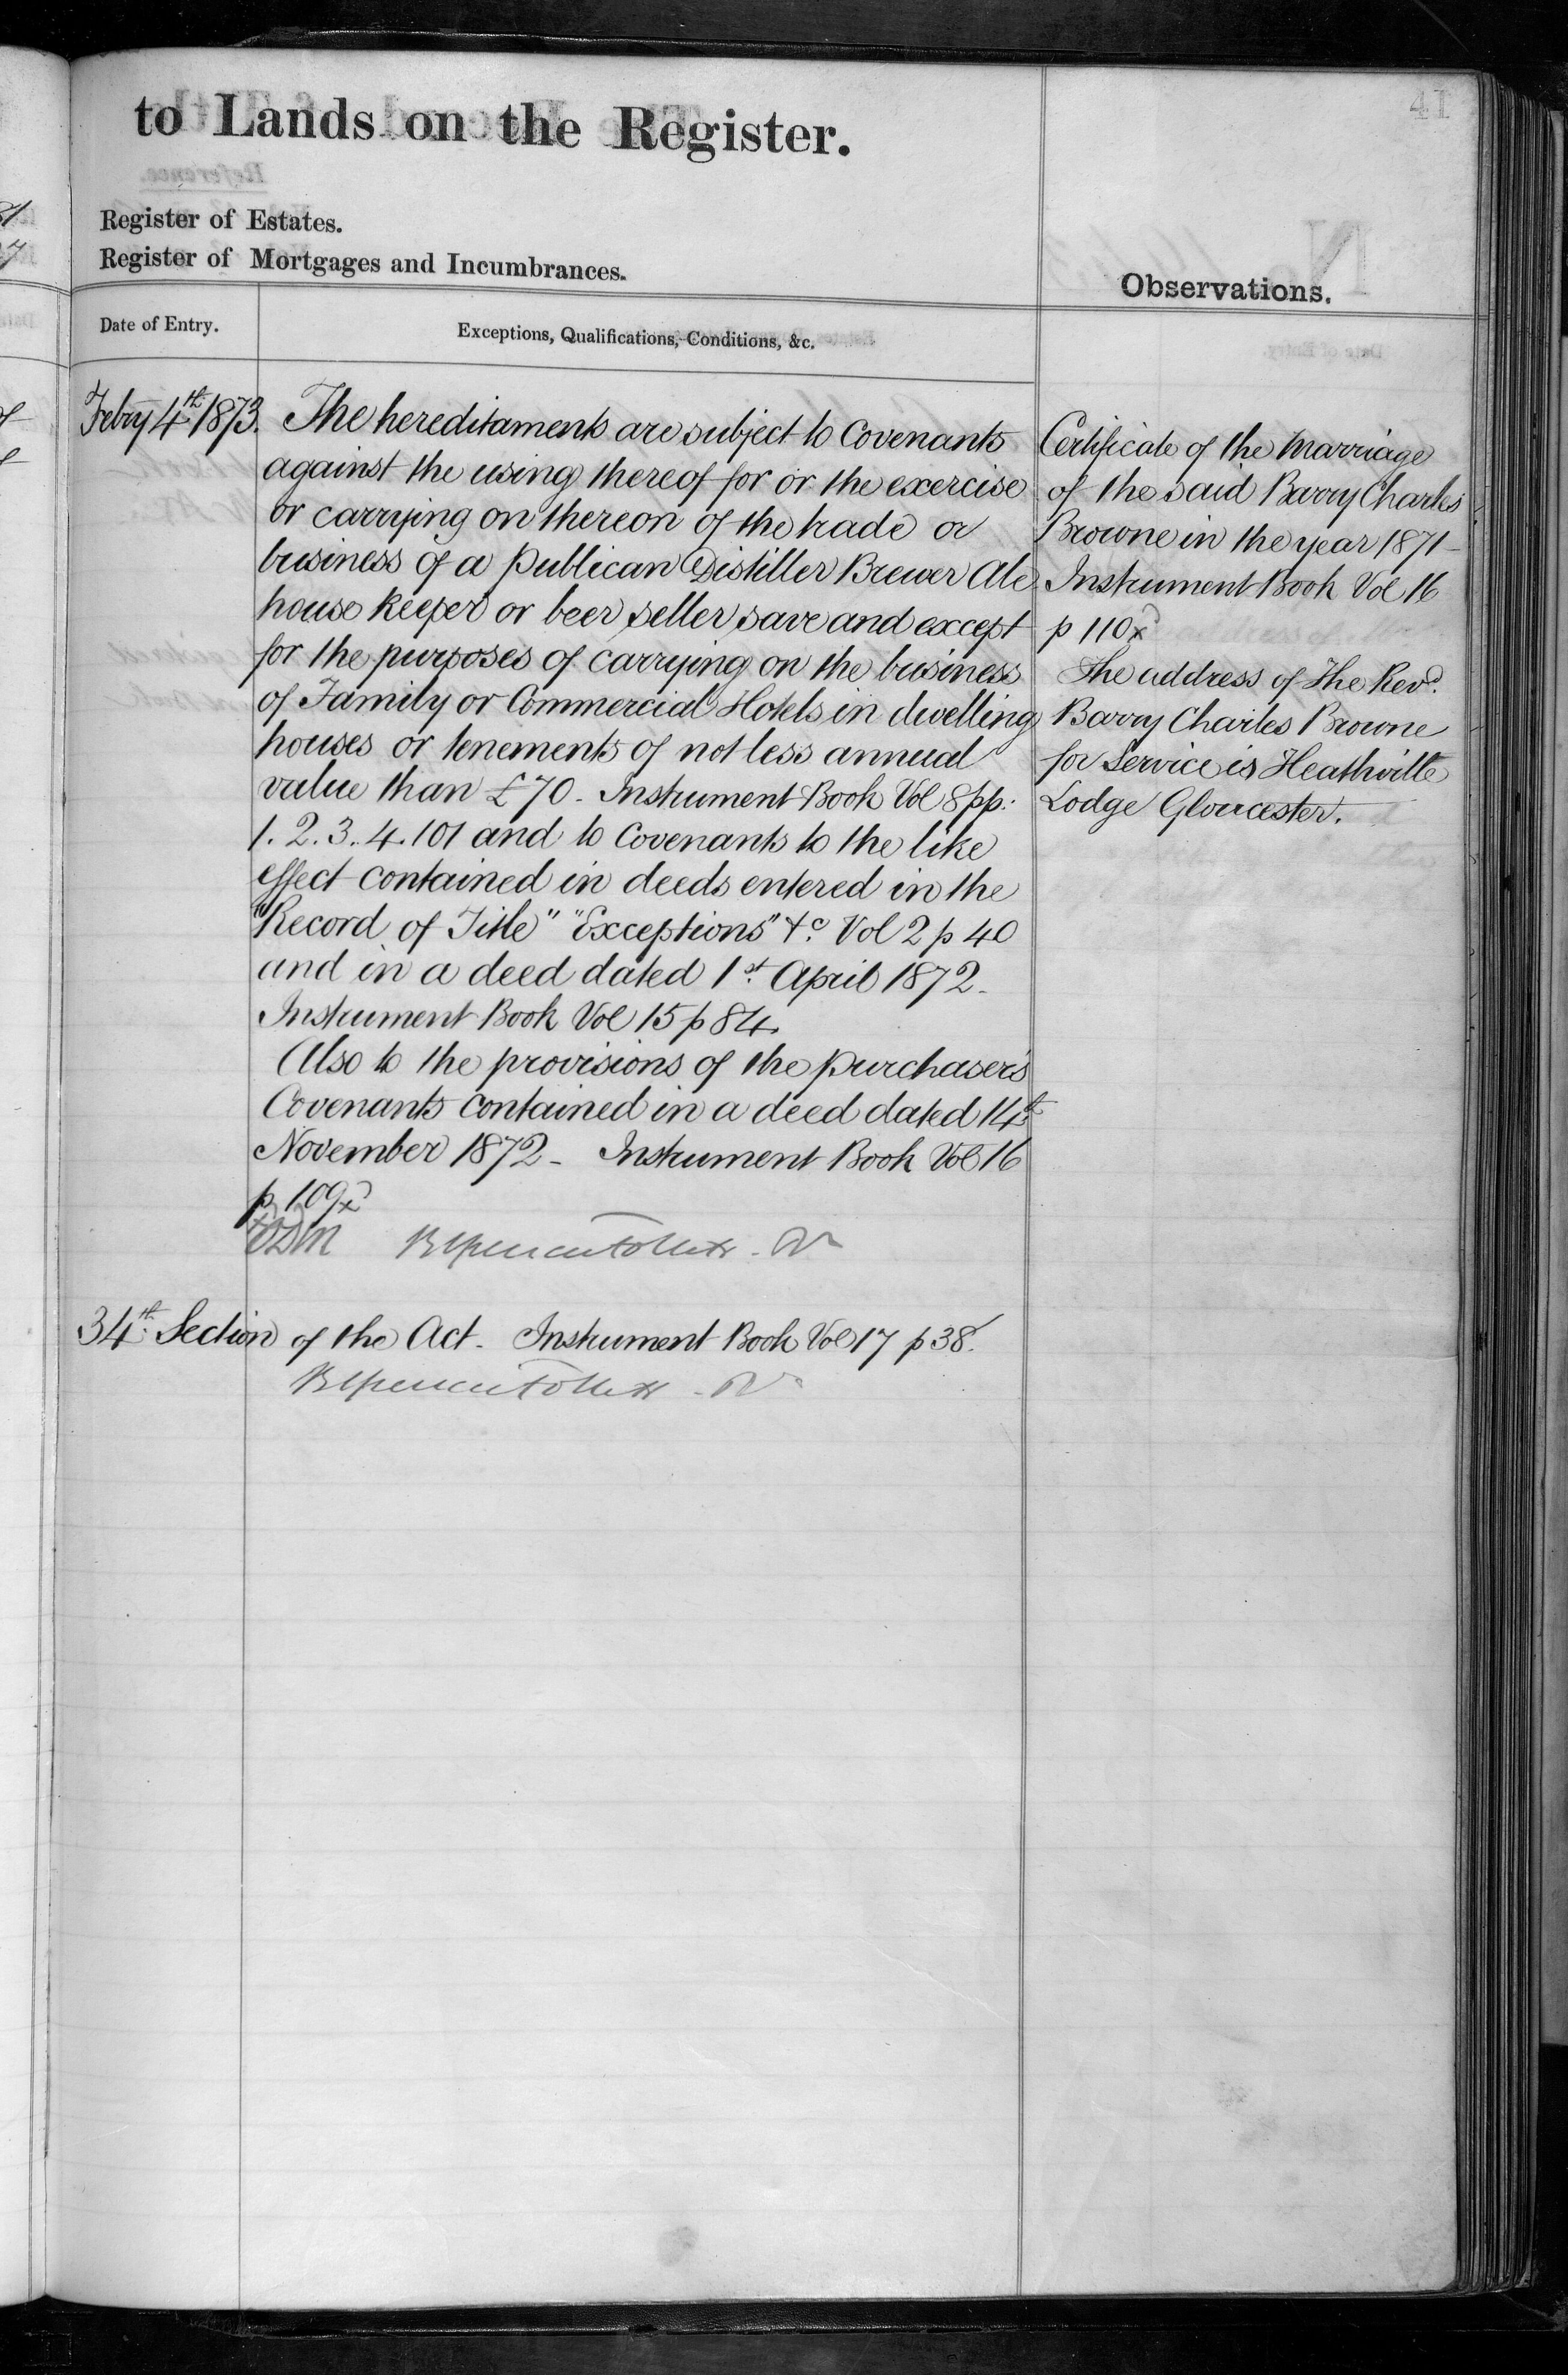 41
to Lands on the Register.
Register of Estates.
Register of Mortgages and Incumbrances.
Observations.
Date of Entry.
Exceptions, Qualifications, Conditions, &c.
Febry 4th 1873.
The hereditaments are subject to Covenants
against the using thereof for or the exercise
or carrying on thereon of the trade or
business of a Publican Distiller Brewer Ale
house keeper or beer seller save and except
for the purposes of carrying on the business
of Family or Commercial Hotels in dwelling
houses or tenements of not less annual
value than £70 - Instrument Book Vol 8 pp.
1. 2. 3. 4. 101 and to Covenants to the like
effect contained in deeds entered in the
"Record of Title" "Exceptions" &c. Vol 2 p 40
and in a deed dated 1st April 1872 -
Instrument Book Vol 15 p 84.
Also to the provisions of the purchaser's
Covenants contained in a deed dated 14th
November 1872 - Instrument Book Vol 16
p 109x
34th Section of the Act - Instrument Book Vol 17 p 38.
Certificate of the Marriage
of the said Barry Charles
Browne in the year 1871 -
Instrument Book Vol 16
p 110x
The address of The Revd.
Barry Charles Browne
for Service is Heathville
Lodge Gloucester.